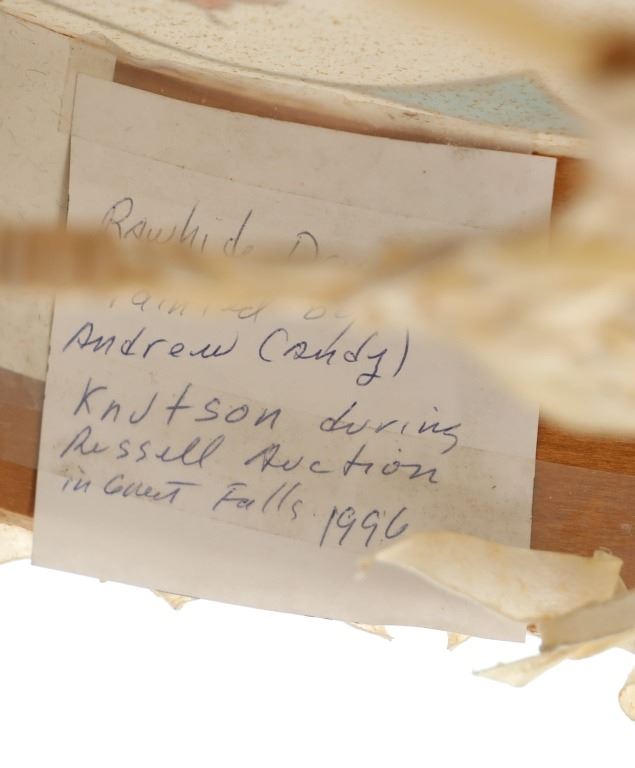 Rawhide
Painted by
Andrew (Andy)
Knutson during
Russell Auction
in Great Falls 1996